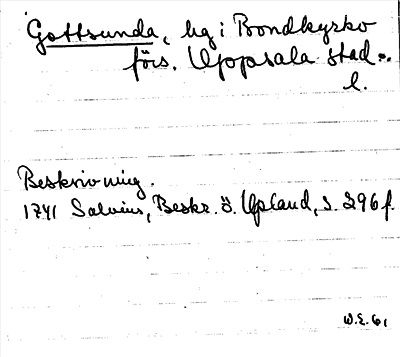 Gottsunda, hg i Bondkyrko
förs. Uppsala stad..
l.
Beskrivning.
1741 Salvius, Beskr. ö. Upland, s. 296 f.
W.E. 61